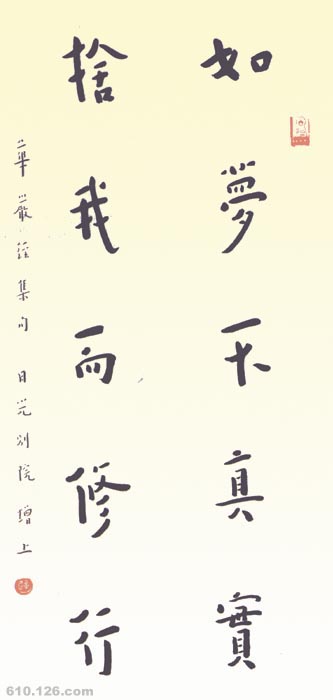 如夢不真實
捨我而修行
華嚴經集句 日光別院 增上
610.126.com